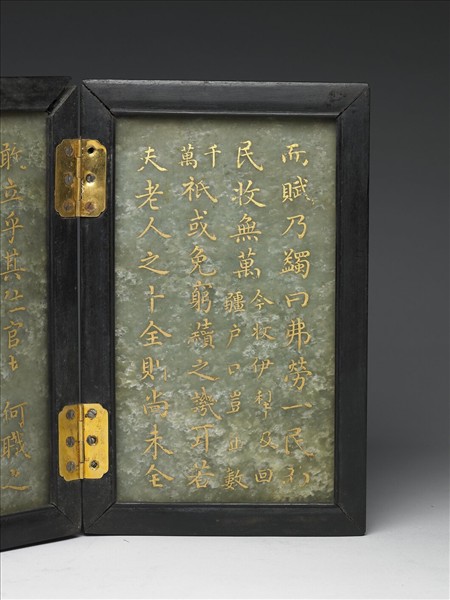 而賦乃蠲四弗勞一民
民收無萬今收伊犁及回疆戶口豈止數
千萬祇或免窮黷之譏耳若
夫老人之十全則尚未全
敢立乎其 官 何職